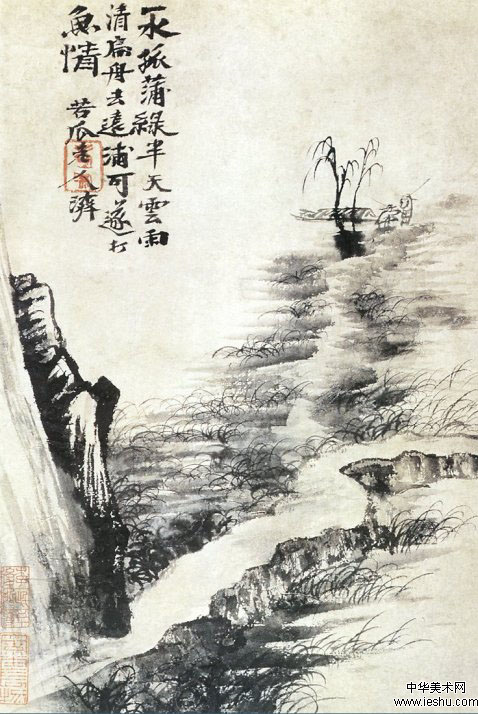 一水孤蒲綠半天雲雨
清扁舟去遠浦可遂打
魚情
苦瓜老人濟
中华美术网
www.ieshu.com